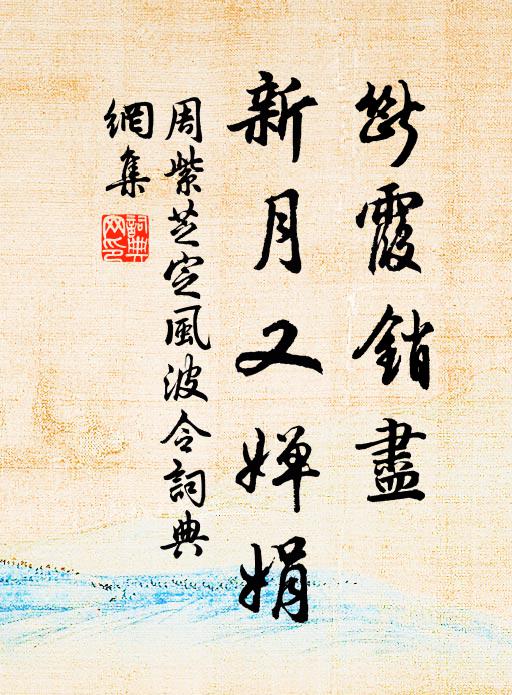 斷霞銷盡
新月又嬋娟
周紫芝定風波令詞典
網集
詞典網印